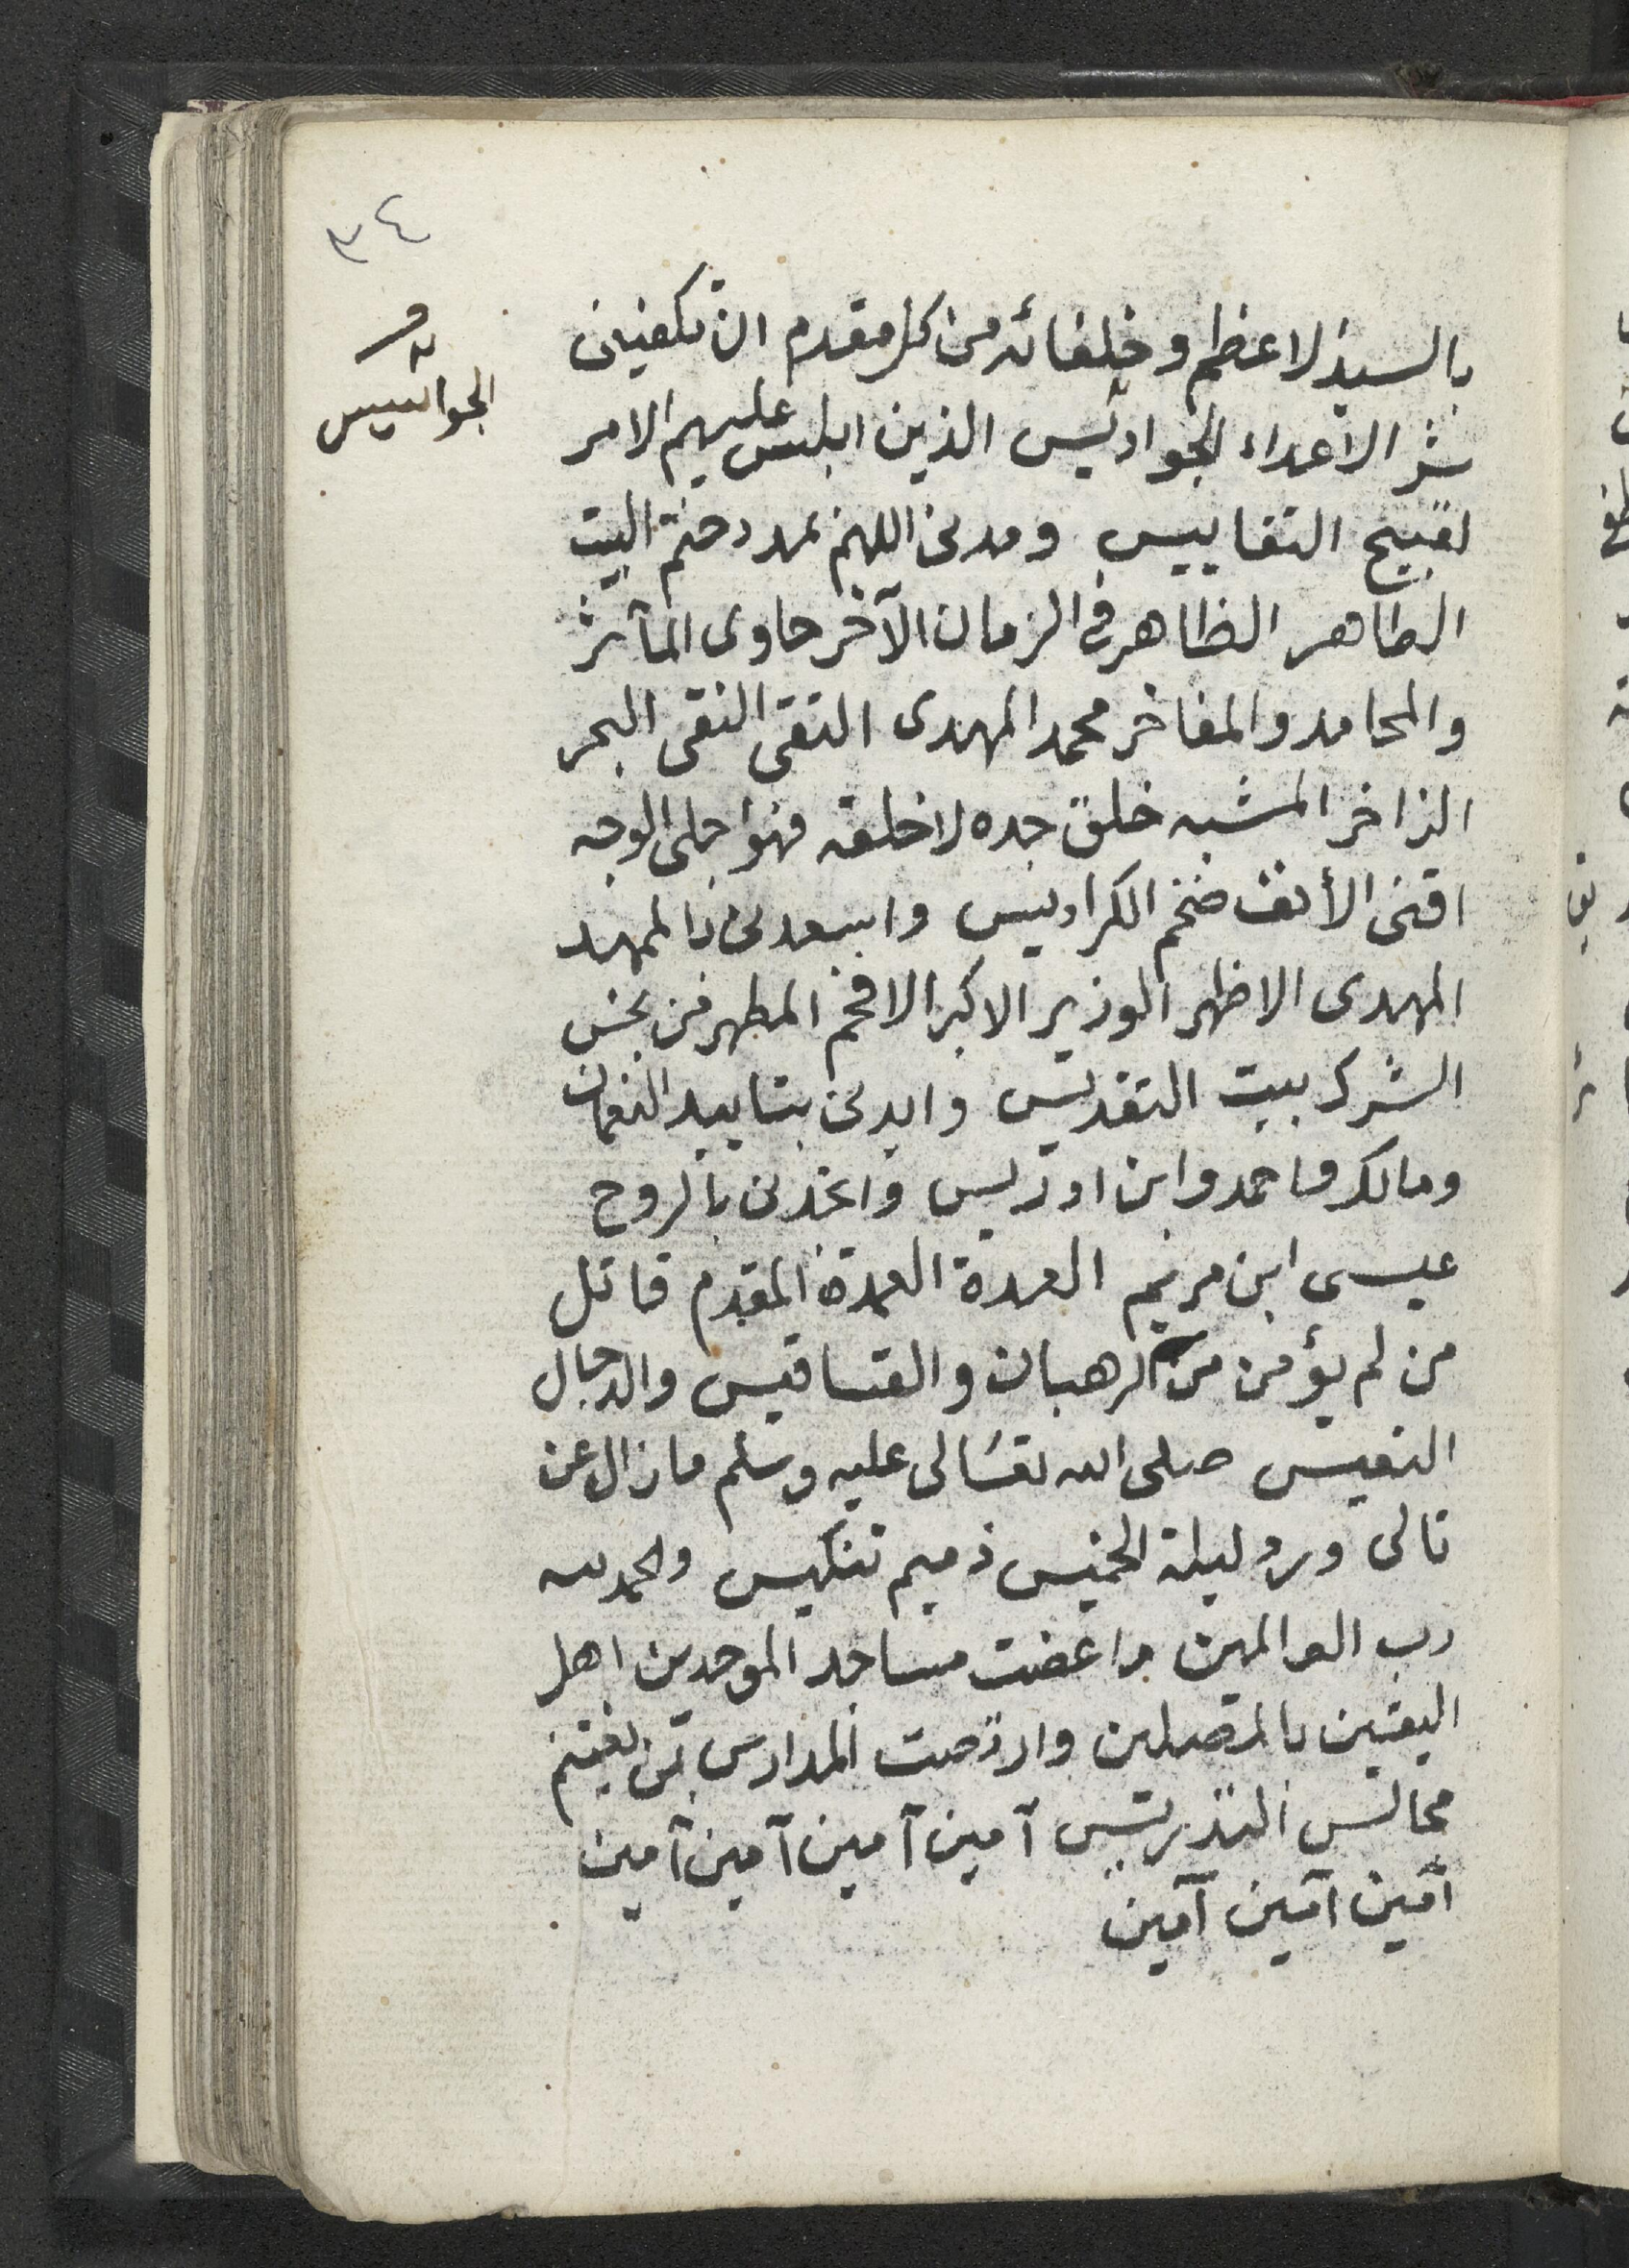 ٣٤
بالسيد الاعظم وخلفائه من كل مقدم ان تكفينى
شر الاعداء الجواديس الذين ابلس عليهم الامر
لقبيح التقاييس ومدنى اللهم بمدد ختم البيت
الطاهر الظاهر فى الزمان الآخر حاوى المآثر
والمحامد والمفاخر محمد المهدى التقى النقى البحر
الزاخر المشبه خلق جده لا خلقه فهو اجلى الوجه
اقنى الأنف ضخم الكراديس واسعدنى بالممهد
المهدى الاظهر الوزير الاكبر الافخم المطهر من نجس
الشرك بيت التقديس وايدنى بتاييد النعمان
ومالك واحمد وابن ادريس وانجدنى بالروح
عيسى ابن مريم العدة العمدة المقدم قاتل
من لم يؤمن من الرهبان والقساقيس والدجال
التعيس صلى الله تعالى عليه وسلم ما زال عن
تالى ورد ليلة الخميس ذميم تنكيس والحمد لله
رب العالمين ما غصت مساجد الموحدين اهل
اليقين بالمصلين وازدحمت المدارس بمن يغتنم
مجالس التدريس آمين آمين آمين آمين
آمين آمين آمين
الجواسيس